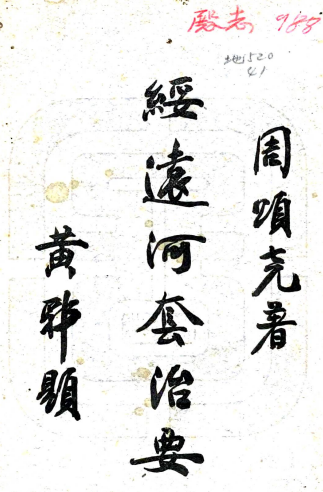 988
地520
41
周頌堯著
綏遠河套治要
黃郛題